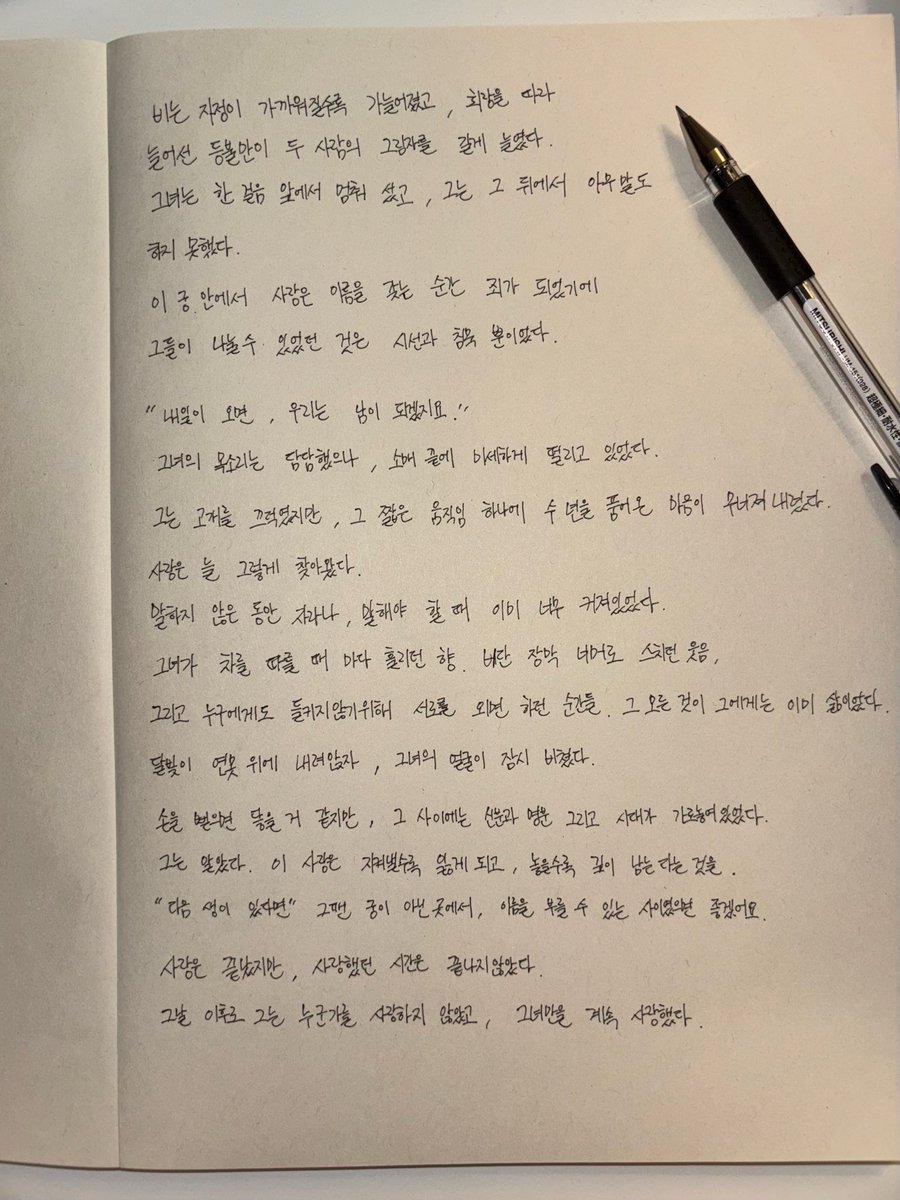 비는 자정이 가까워질수록 가늘어졌고, 회랑을 따라
늘어선 등불만이 두 사람의 그림자를 길게 늘였다.
그녀는 한 걸음 앞에서 멈춰 섰고, 그는 그 뒤에서 아무 말도
하지 못했다.
이 궁 안에서 사랑은 이름을 갖는 순간 죄가 되었기에
그들이 나눌 수 있었던 것은 시선과 침묵 뿐이었다.
"내일이 오면, 우리는 남이 되겠지요."
그녀의 목소리는 담담했으나, 소매 끝에 미세하게 떨리고 있었다.
그는 고개를 끄덕였지만, 그 짧은 움직임 하나에 수 년을 품어온 마음이 무너져 내렸다.
사랑은 늘 그렇게 찾아왔다.
말하지 않은 동안 자라나, 말해야 할 때 이미 너무 커져있었다.
그녀가 차를 따를 때 마다 흘리던 향. 비단 장막 너머로 스치던 웃음,
그리고 누구에게도 들키지않기위해 서로를 외면 하던 순간들. 그 모든 것이 그에게는 이미 삶이었다.
달빛이 연못 위에 내려앉자, 그녀의 얼굴이 잠시 비쳤다.
손을 뻗으면 닿을 거 같지만, 그 사이에는 신분과 명운 그리고 시대가 가로놓여있었다.
그는 알았다. 이 사랑은 지켜낼수록 잃게 되고, 놓을수록 깊이 남는 다는 것을.
"다음 생이 있다면" 그땐 궁이 아닌 곳에서, 이름을 부를 수 있는 사이였으면 좋겠어요.
사랑은 끝났지만, 사랑했던 시간은 끝나지않았다.
그날 이후로 그는 누군가를 사랑하지 않았고, 그녀만을 계속 사랑했다.
MITSUBISHI